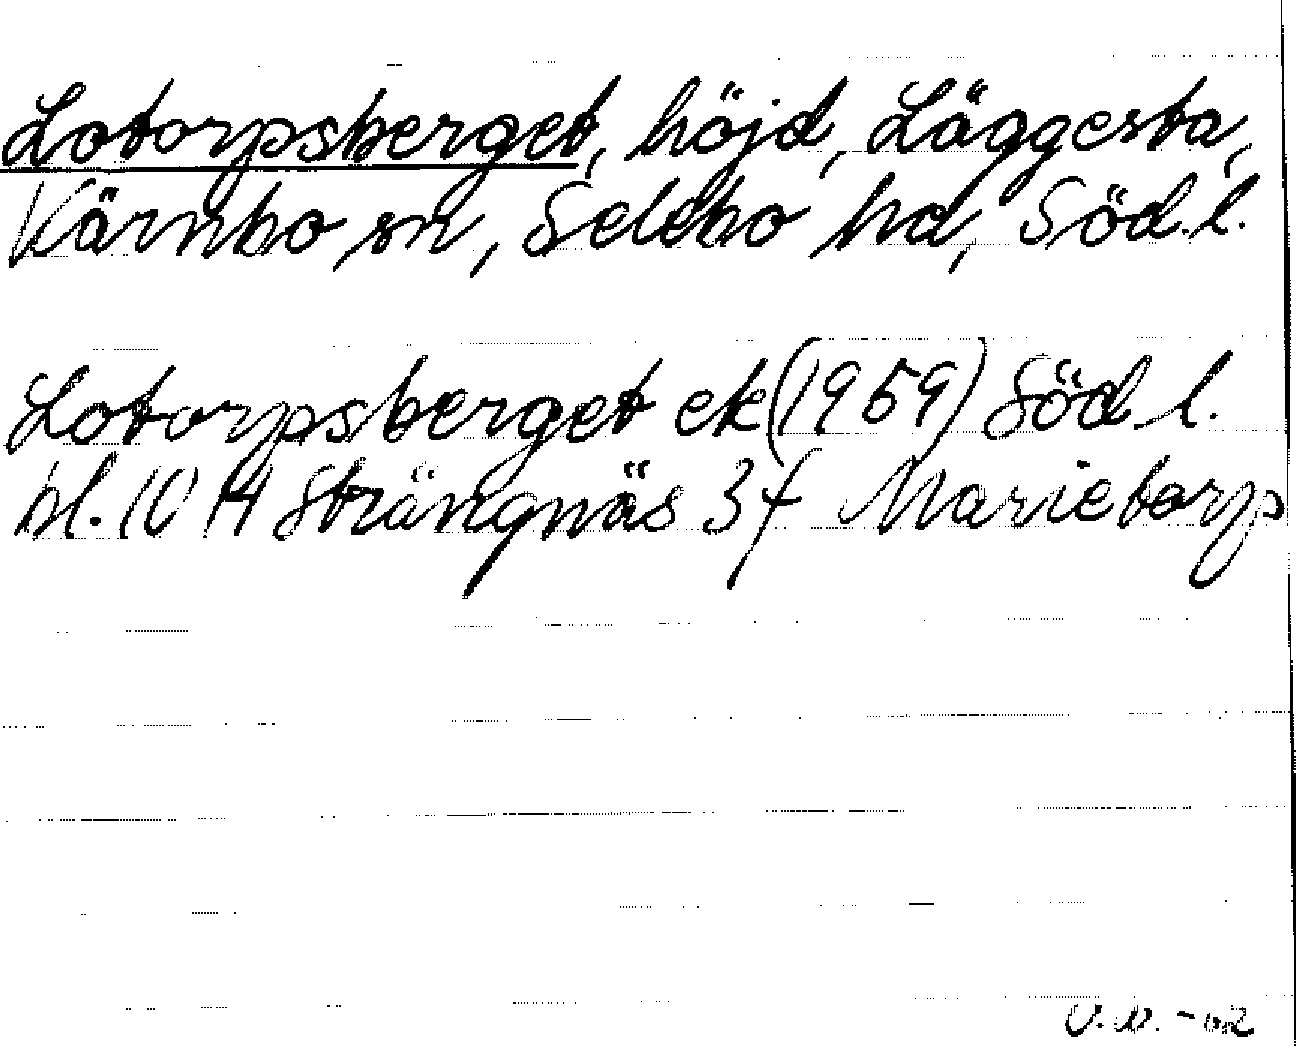 Lotorpsberget, höjd, Läggesta,
Kärnbo sn, Selebo hd, Söd.l.
Lotorpsberget ek (1959) Söd.l.
bl. 10 H Strängnäs 3f Marietorp